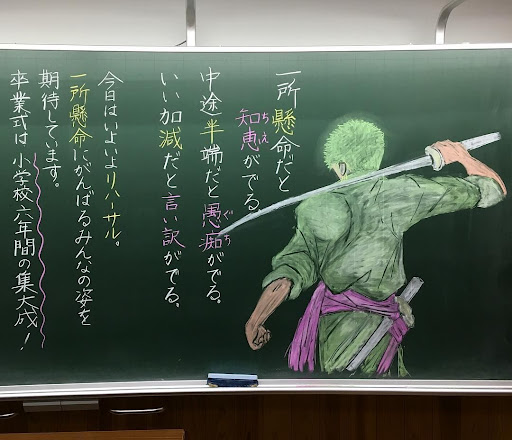 一所懸命だと
知恵がでる。
ちえ
中途半端だと愚痴がでる。
ぐち
いい加減だと言い訳がでる。
今日はいよいよリハーサル。
一所懸命にがんばるみんなの姿を
期待しています。
卒業式は小学校六年間の集大成！